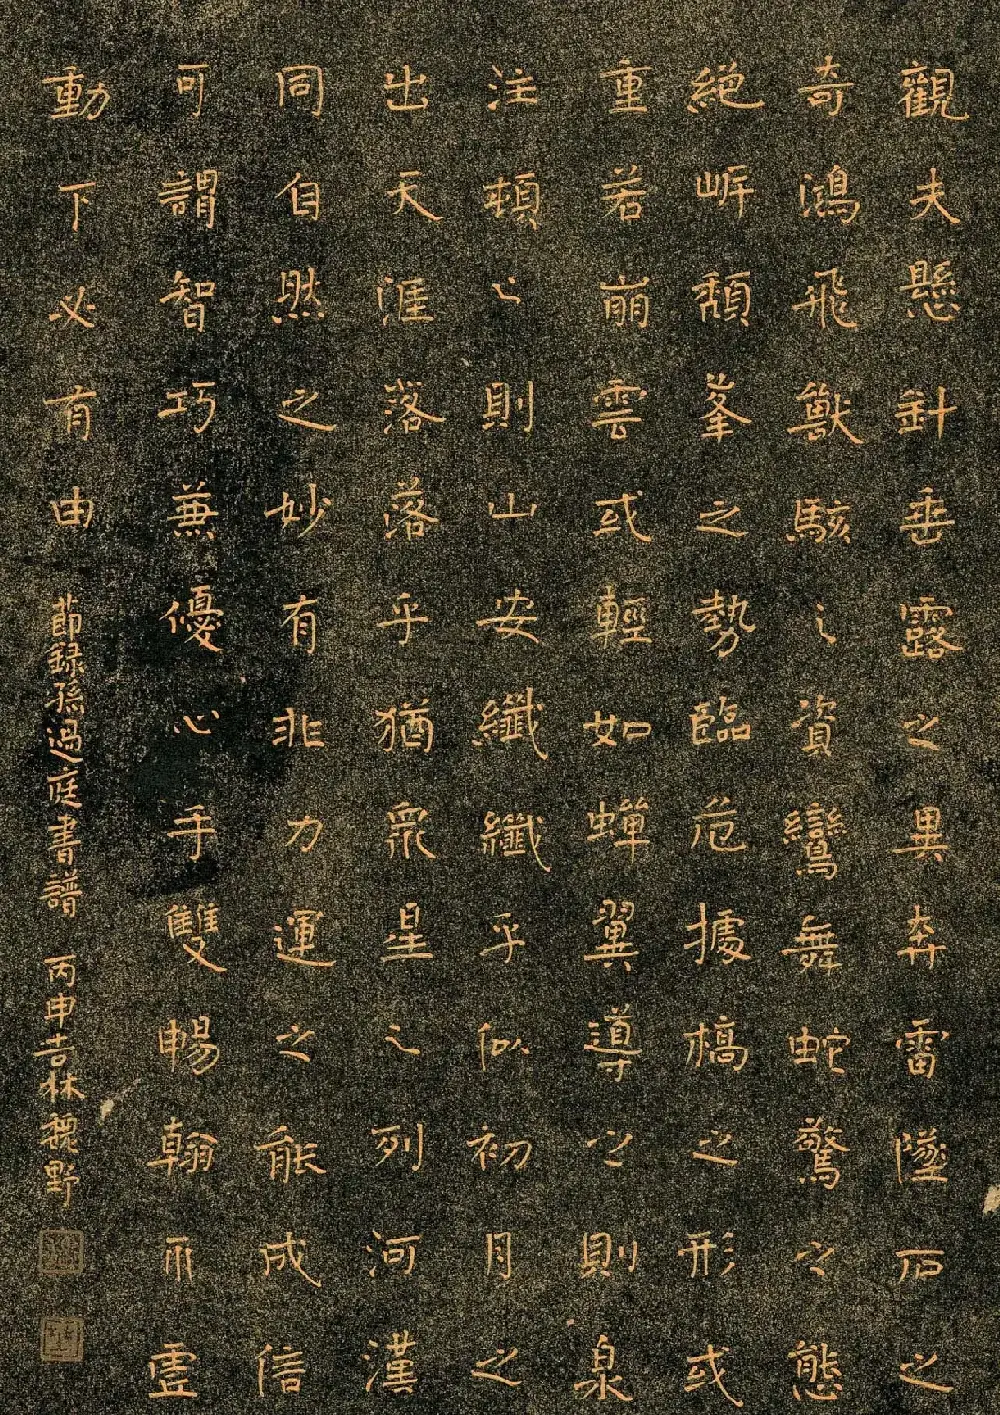 觀夫懸針垂露之異奔雷墜石之
奇鴻飛獸駭之資鸞舞蛇驚之態
絕岸頹峯之勢臨危據槁之形或
重若崩雲或輕如蟬翼導之則泉
注頓之則山安纖纖乎似初月之
出天涯落落乎猶衆星之列河漢
同自然之妙有非力運之能成信
可謂智巧兼優心手雙暢翰不虛
動下必有由
節録孫過庭書譜 丙申吉林魏野